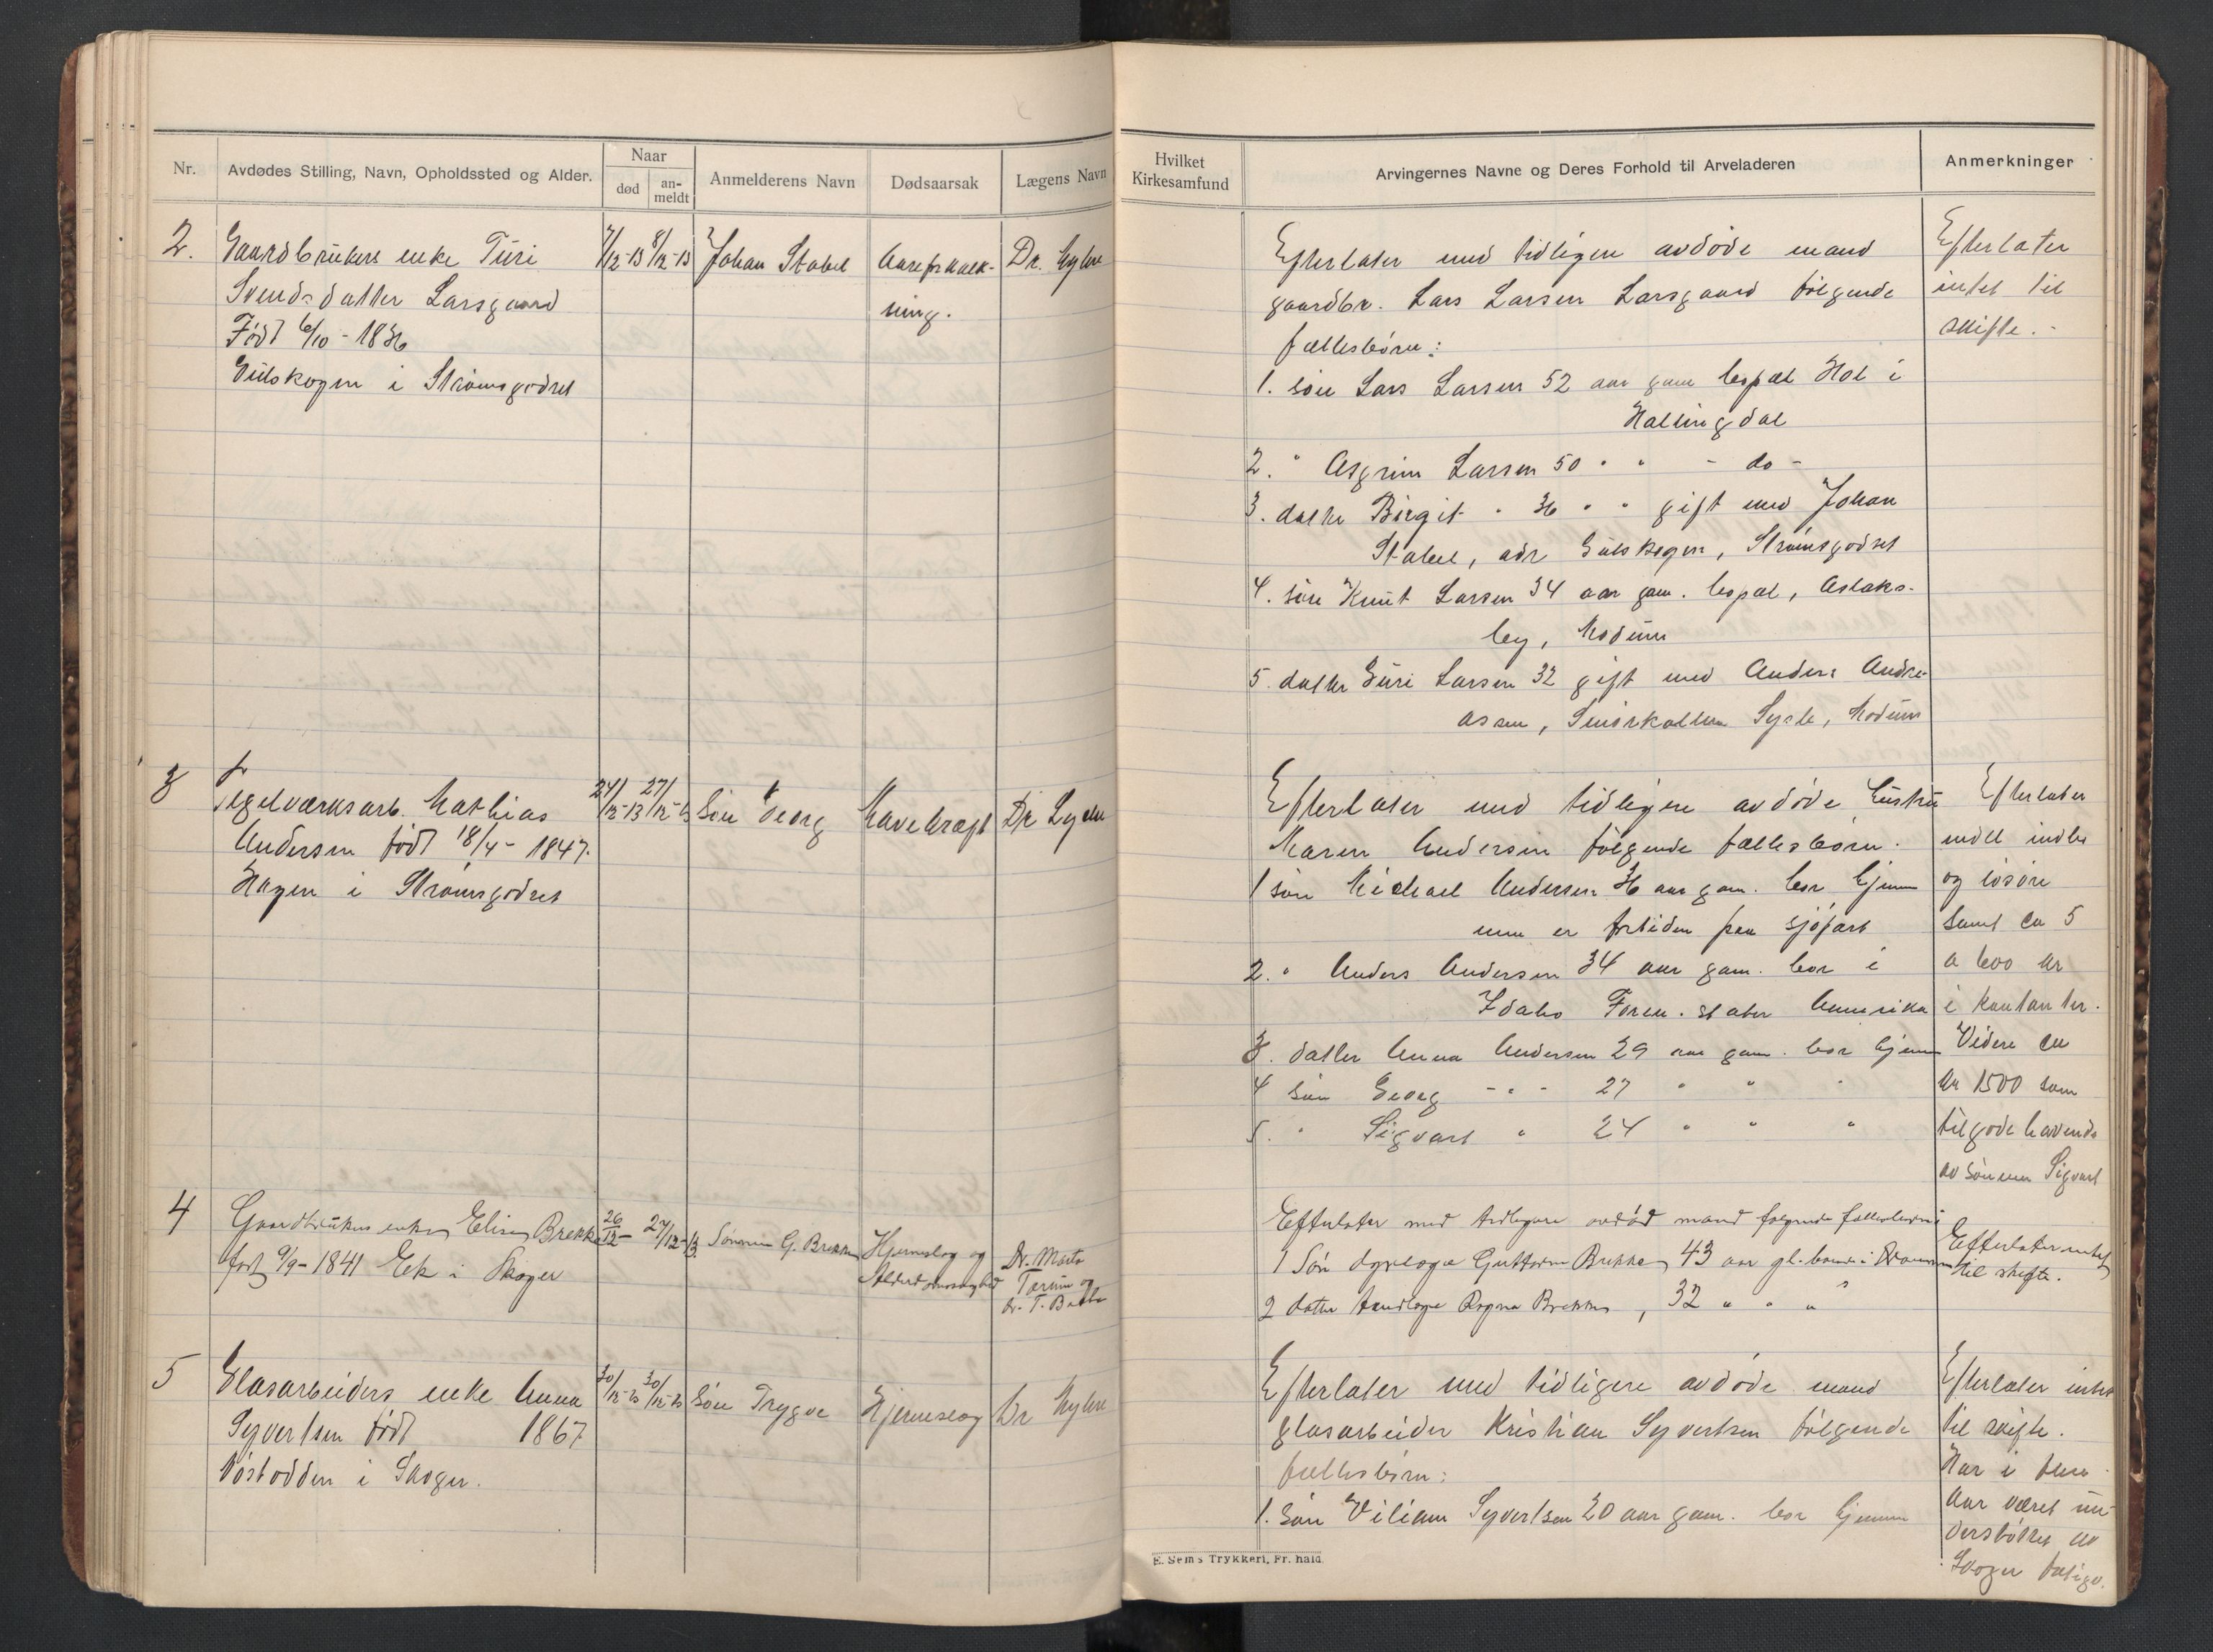 Nr.
Avdødes Stilling, Navn, Opholdssted og Alder.
Naar
død
an-
meldt
Anmelderens Navn
Dødsaarsak
Lægens Navn
Hvilket
Kirkesamfund
Arvingernes Navne og Deres Forhold til Arveladeren
Anmerkninger
2. Gaardbrukers enke Turi
Svendsdatter Larsgaard
Född 6/10 - 1836
Gulskogen i Strømsgodset
7/12-13 8/12-13
Johan Stabel
Aareforkalk-
ning.
Dr.
Efterlater med tidligere avdøde mand
gaardbr. Lars Larsen Larsgaard følgende
fællesbørn:
1. søn Lars Larsen 52 aar gam bopæl Hol i
Hallingdal
2. " Asgrim Larsen 50 " " - do -
3. datter Birgit " 36 " " gift med Johan
Stabel, adr Gulskogen, Strømsgodset
4. søn Knut Larsen 34 aar gam. bopæl, Aslaks-
by, Modum
5. datter Guri Larsen 32 gift med Anders Andre-
assen, Snarum
Efterlater
intet til
skifte. -
3 Teglværksarb. Mathias
Andersen född 18/4 - 1847.
Hagen i Strømsgodset
24/12-13 27/12-13
Søn Georg
Mavekræft
Dr
Efterlater med tidligere avdøde hustru
Maren Andersen følgende fællesbørn.
1 søn Michael Andersen 36 aar gam. bor hjemme
men er fortiden paa sjøfart
2. " Anders Andersen 34 aar gam. bor i
Idaho Foren. stater Amerika
3. datter Anna Andersen 29 aar gam. bor hjemme
4 søn Georg - " - 27 " " "
5. " Sigvart " 24 " " "
Efterlater
endel indbo
og løsøre
samt ca 5
a 600 kr
i kontanter.
Videre ca
kr 1500 som
tilgodehavende
av sønnen Sigvart
4 Gaardbrukers enke Elise Brekke
født 9/9 - 1841 Ek i Skoger
26/12- 27/12-13
Sønnen G. Brekke
Hjerneslag og
Alderdomssvaghed
Dr. Marta
Tørum og
dr. T.
Efterlater med tidligere avdød mand følgende fællesbørn:
1 Søn dyrlæge Guttorm Brekke, 43 aar gl. boende i Drammen
2 datter tandlæge Ragna Brekke, 32 " " "
Efterlater intet
til skifte.
5 Glasarbeiders enke Anna
Syvertsen född 1867
i Skoger.
30/12-13 30/12-13
Søn Trygve
Hjerneslag
Dr
Efterlater med tidligere avdøde mand
glasarbeider Kristian Syvertsen følgende
fællesbørn:
1. Søn Viliam Syvertsen 20 aar gam. bor hjemme
Efterlater intet
til skifte.
Har i flere
aar været un-
derstøttet av
Skoger fattigv.
E. Sem's Trykkeri, Fr. hald.